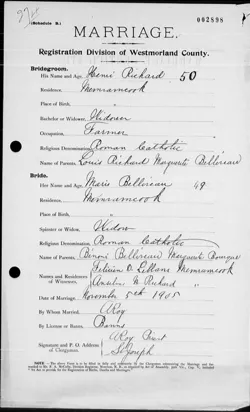 274
(Schedule B.)
002898
MARRIAGE.
Registration Division of Westmorland County.
Bridegroom.
His Name and Age, Henri Richard 50
Residence, Memramcook
Place of Birth, "
Bachelor or Widower, Widower
Occupation, Farmer
Religious Denomination, Roman Catholic
Name of Parents, Louis Richard Marguerite Belliveau
Bride.
Her Name and Age, Marie Belliveau 49
Residence, Memramcook
Place of Birth, "
Spinster or Widow, Widow
Religious Denomination, Roman Catholic
Name of Parents, Binoni Belliveau Marguerite Bourque
Names and Residences of Witnesses, D. LeBlanc Memramcook
Anselm N Richard "
Date of Marriage, November 5th 1905
By Whom Married, A Roy
By License or Banns, Banns
Signature and P. O. Address of Clergyman, A Roy Priest
St Joseph